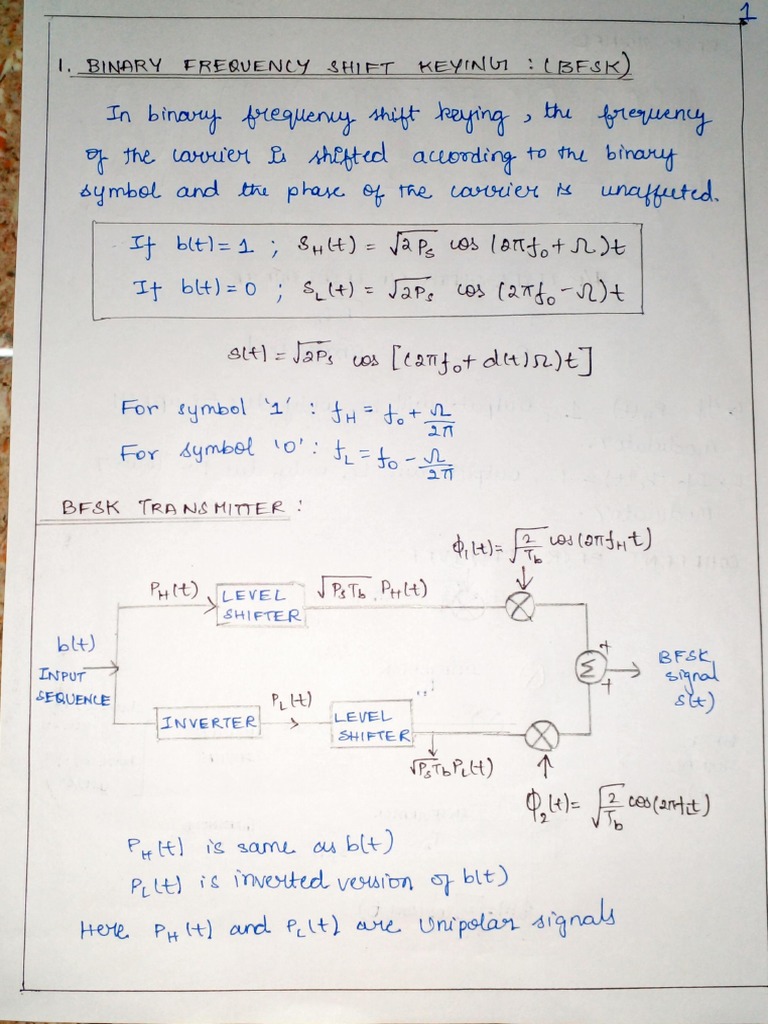 1
1. BINARY FREQUENCY SHIFT KEYING : (BFSK)
In binary frequency shift keying, the frequency
of the carrier is shifted according to the binary
symbol and the phase of the carrier is unaffected.
If b(t) = 1 ; S_H(t) = √2P_s cos (2πf_0 + Ω)t
If b(t) = 0 ; S_L(t) = √2P_s cos (2πf_0 - Ω)t
s(t) = √2P_s cos [(2πf_0 + d(t)Ω)t]
For symbol '1' : f_H = f_0 + Ω/2π
For symbol '0' : f_L = f_0 - Ω/2π
BFSK TRANSMITTER :
ϕ_1(t) = √(2/T_b) cos(2πf_H t)
P_H(t)
LEVEL
SHIFTER
√P_sT_b . P_H(t)
b(t)
INPUT
SEQUENCE
Σ
+
+
BFSK
signal
s(t)
INVERTER
P_L(t)
LEVEL
SHIFTER
√P_sT_b P_L(t)
ϕ_2(t) = √(2/T_b) cos(2πf_L t)
P_H(t) is same as b(t)
P_L(t) is inverted version of b(t)
Here P_H(t) and P_L(t) are Unipolar signals